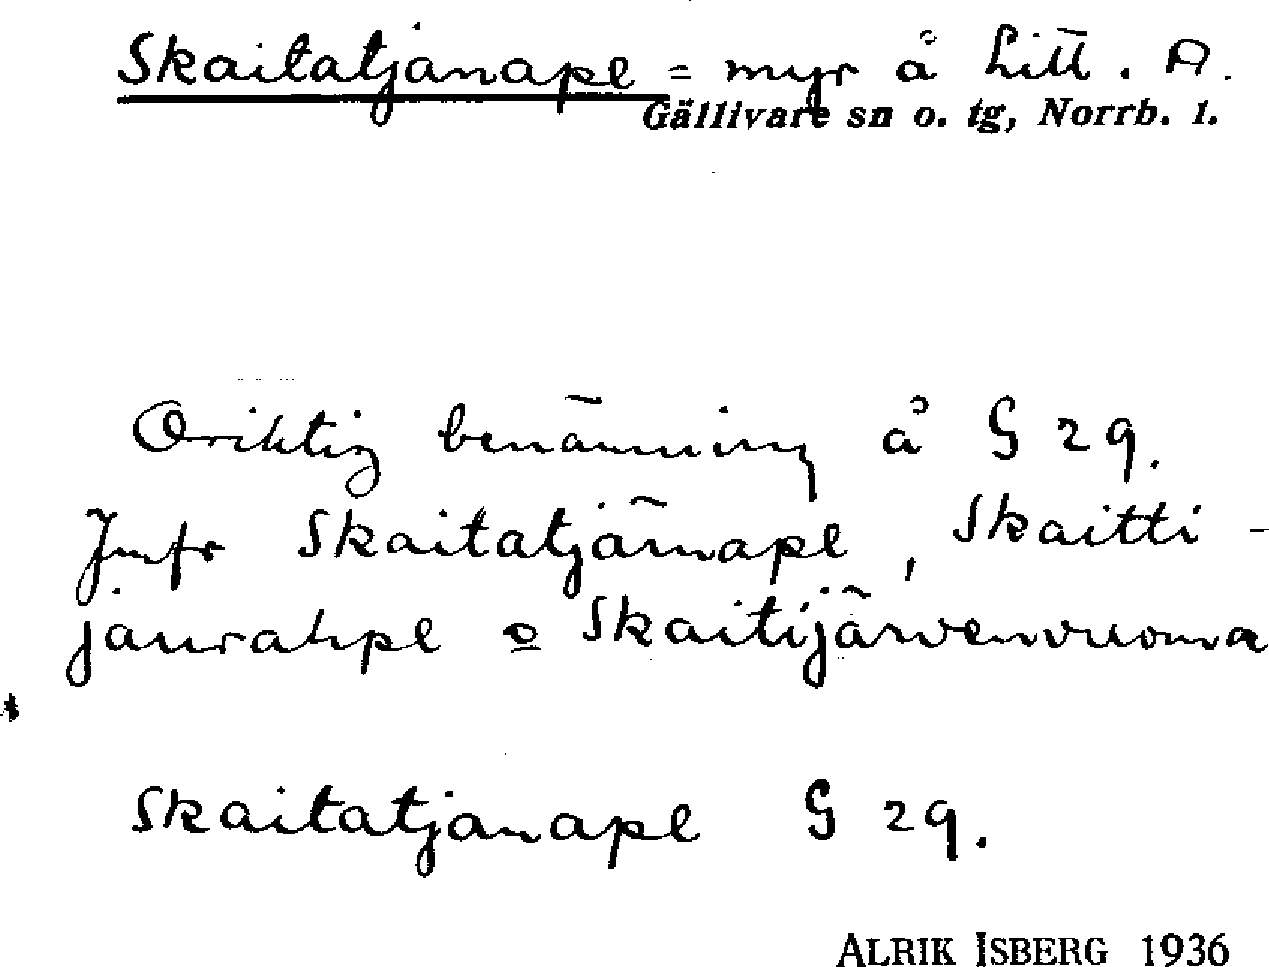 Skaitatjanape = myr å Litt. A.
Gällivare sn o. tg, Norrb. l.
Oriktig benämning å G 29.
Jmfr Skaitatjärnape, Skaitti-
jaurahpe o Skaitijärvenvuoma
Skaitatjanape G 29.
ALRIK ISBERG 1936